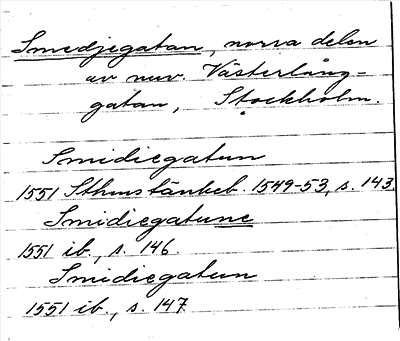 Smedjegatan, norra delen
av nuv. Västerlång-
gatan, Stockholm.
Smidiegatun
1551 Sthms tänkeb. 1549-53, s. 143.
Smidiegatune
1551 ib., s. 146.
Smidiegatun
1551 ib., s. 147